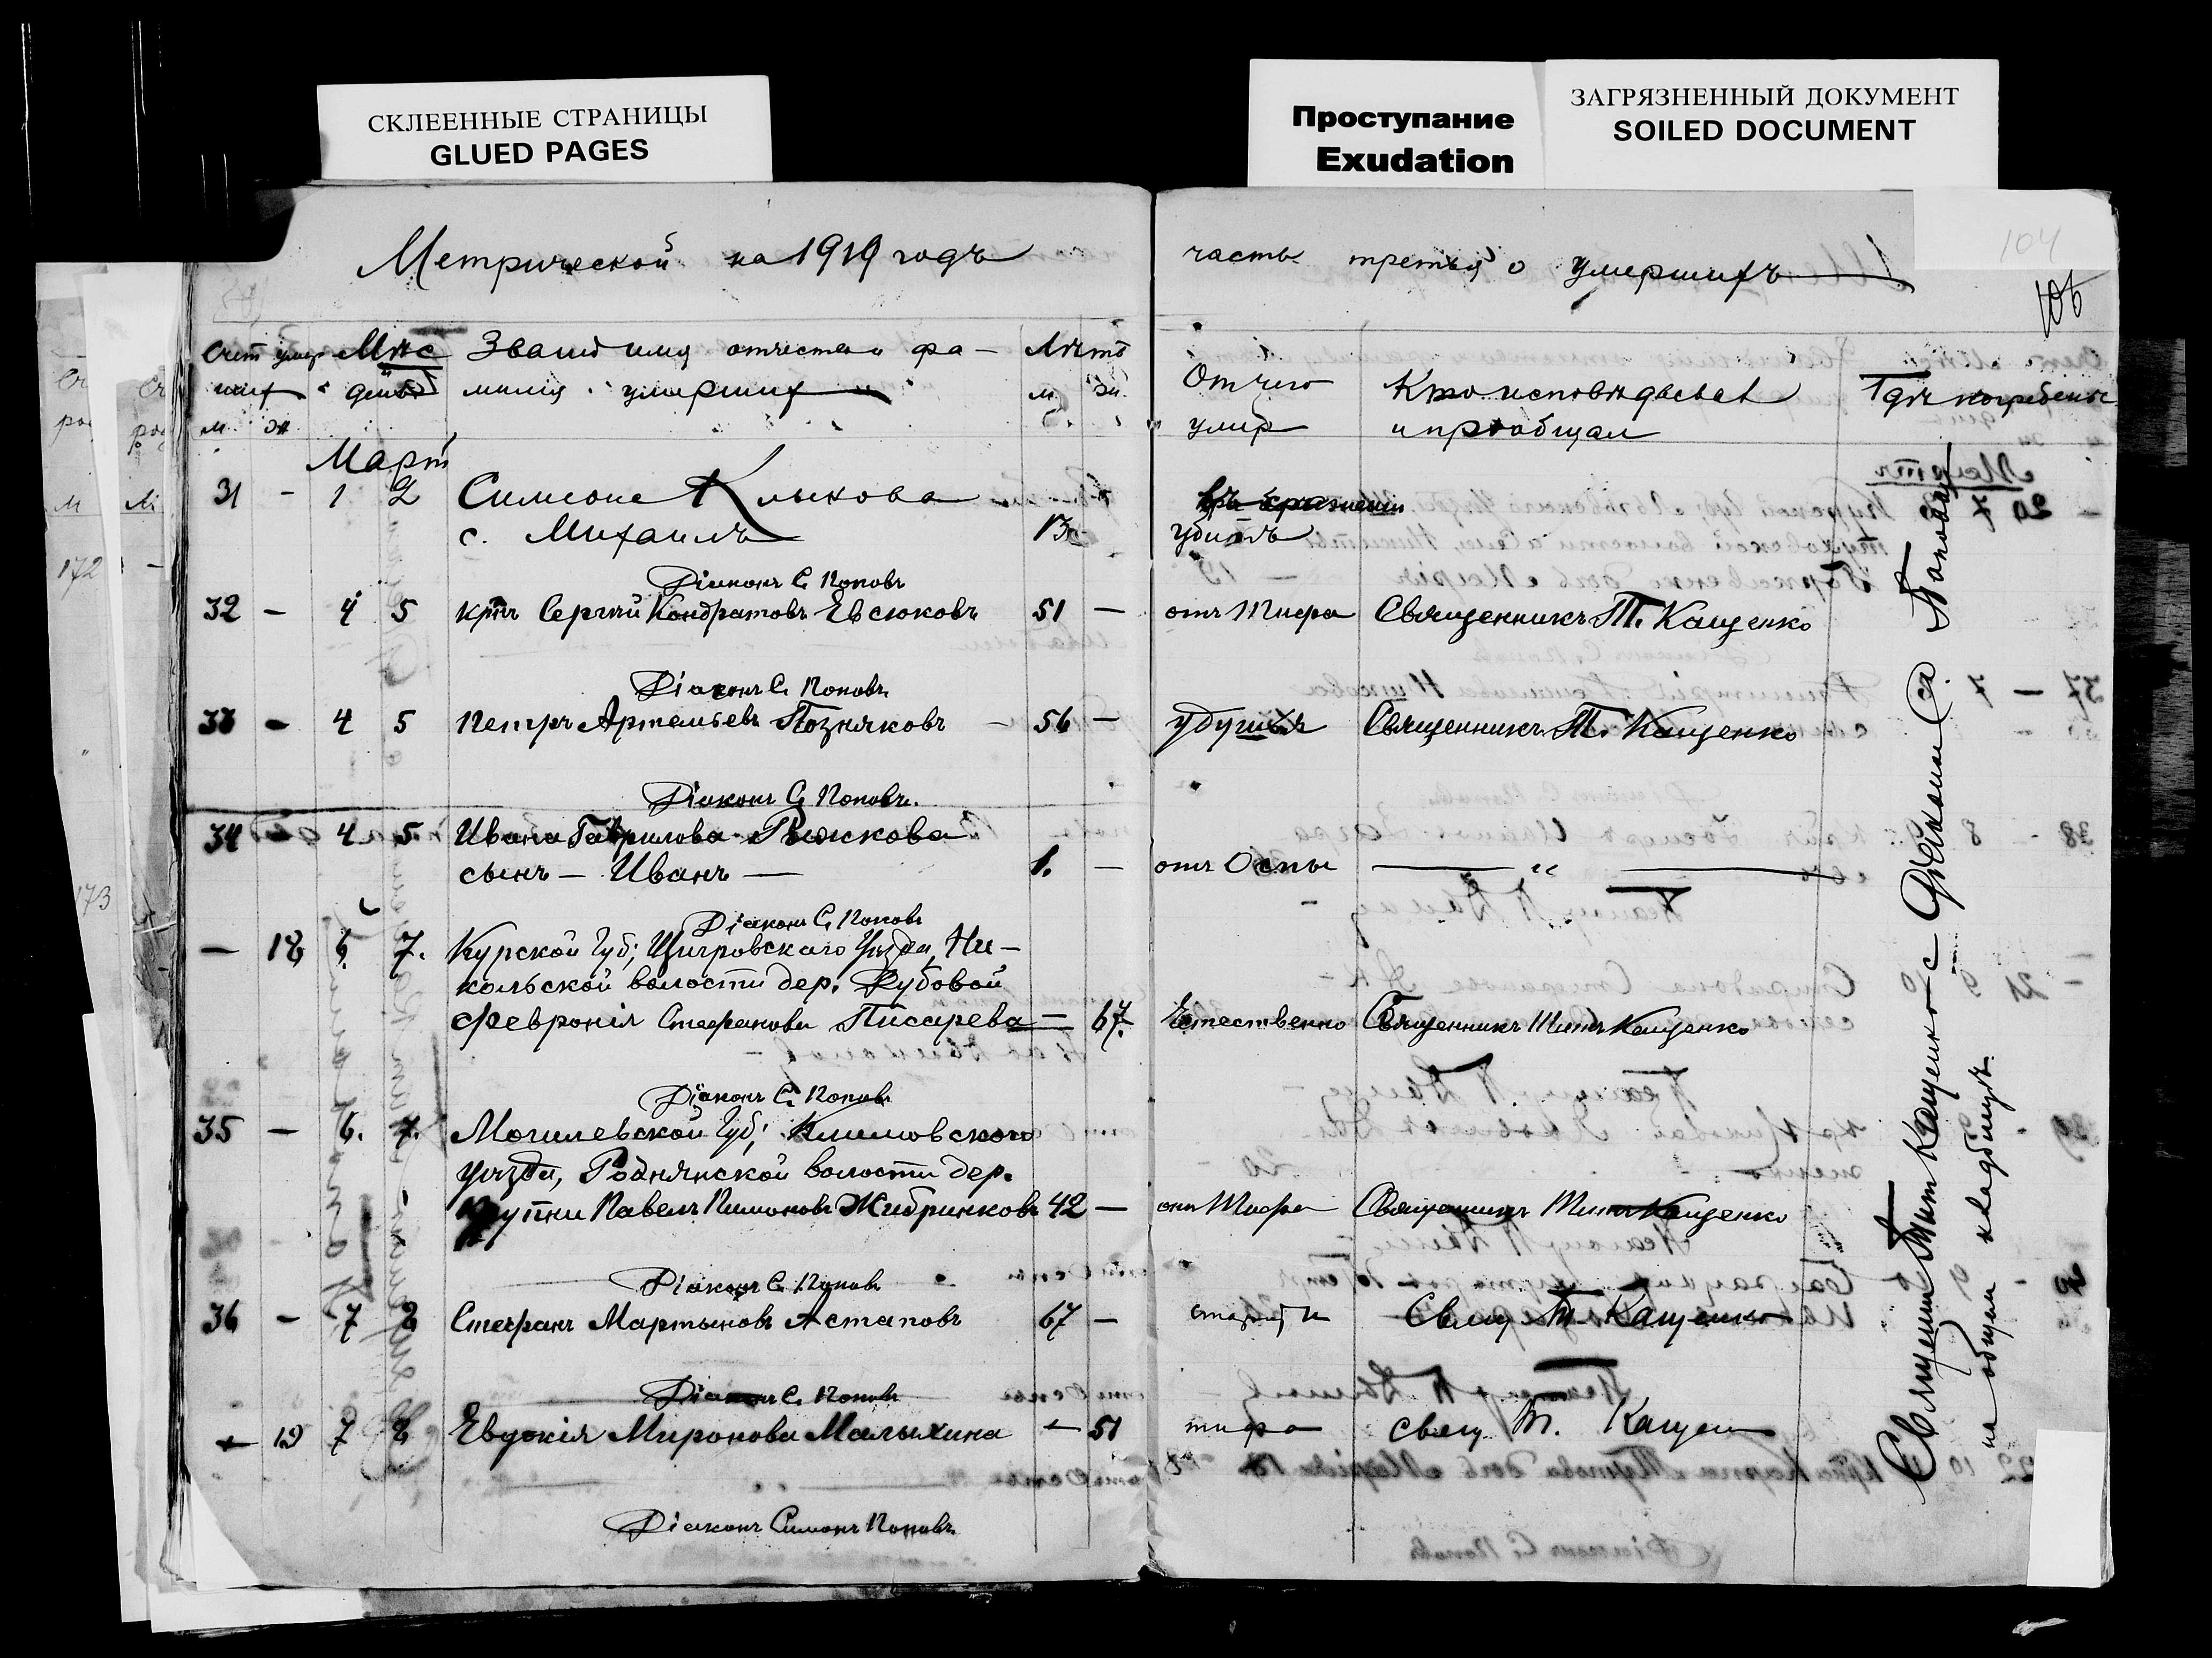 СКЛЕЕННЫЕ СТРАНИЦЫ
GLUED PAGES
Проступание
Exudation
ЗАГРЯЗНЕННЫЙ ДОКУМЕНТ
SOILED DOCUMENT
104
106
172
173
Метрической на 1919 годъ
часть третья о умершихъ
Счет умер Мѣс Званіе имя отчество и фа- Лѣтъ
ших день милия умерших м ж
м ж
Отчего Кто исповѣдывал Гдѣ погребены
умер и приобщал
Март
31 - 1 2 Симеона Клыкова
с. Михаилъ 13 убитъ
Діаконъ С. Поповъ
32 - 4 5 кр. Сергѣй Кондратовъ Евсюковъ 51 - отъ Тифа Священникъ Т. Кащенко
Діаконъ С. Поповъ
33 - 4 5 Петръ Артемьевъ Позняковъ - 56 - удушья Священникъ Т. Кащенко
Діаконъ С. Поповъ.
34 - 4 5 Ивана Гаврилова Рыжкова
сынъ - Иванъ - 1. - отъ Оспы — „ —
Діаконъ С. Поповъ
- 18 6. 7. Курской Губ; Щигровскаго Уѣзда, Ни-
кольской волости дер. Дубовой
Февронія Стефанова Писарева - 67. Естественно Священникъ Титъ Кащенко
Діаконъ С. Поповъ
35 - 6. 7. Могилевской Губ; Климовскаго
уѣзда, Роднянской волости дер.
Павелъ Пимоновъ Жибринковъ 42 - отъ Тифа Священникъ Титъ Кащенко
Діаконъ С. Поповъ
36 - 7 8 Стефанъ Мартыновъ Астаповъ 67 - старости Свящ Т. Кащенко
Діаконъ С. Поповъ
- 19 7 8 Евдокія Миронова Малыхина - 51 тифа Свящ. Т. Кащен
Діаконъ Симонъ Поповъ
Священник Тит Кащенко с Діаконом С. Поповым
на общем кладбищѣ